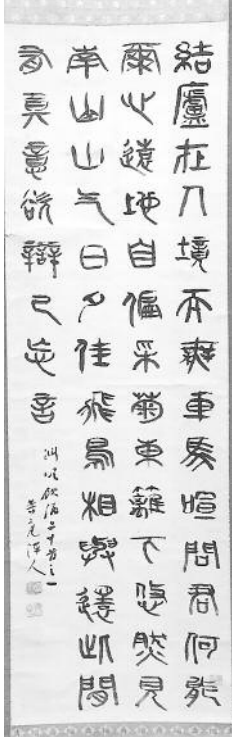 結廬在人境而無車馬喧問君何能
爾心遠地自偏采菊東籬下悠然見
南山山气日夕佳飛鳥相與還此間
有真意欲辯已忘言
飲酒二十首之一